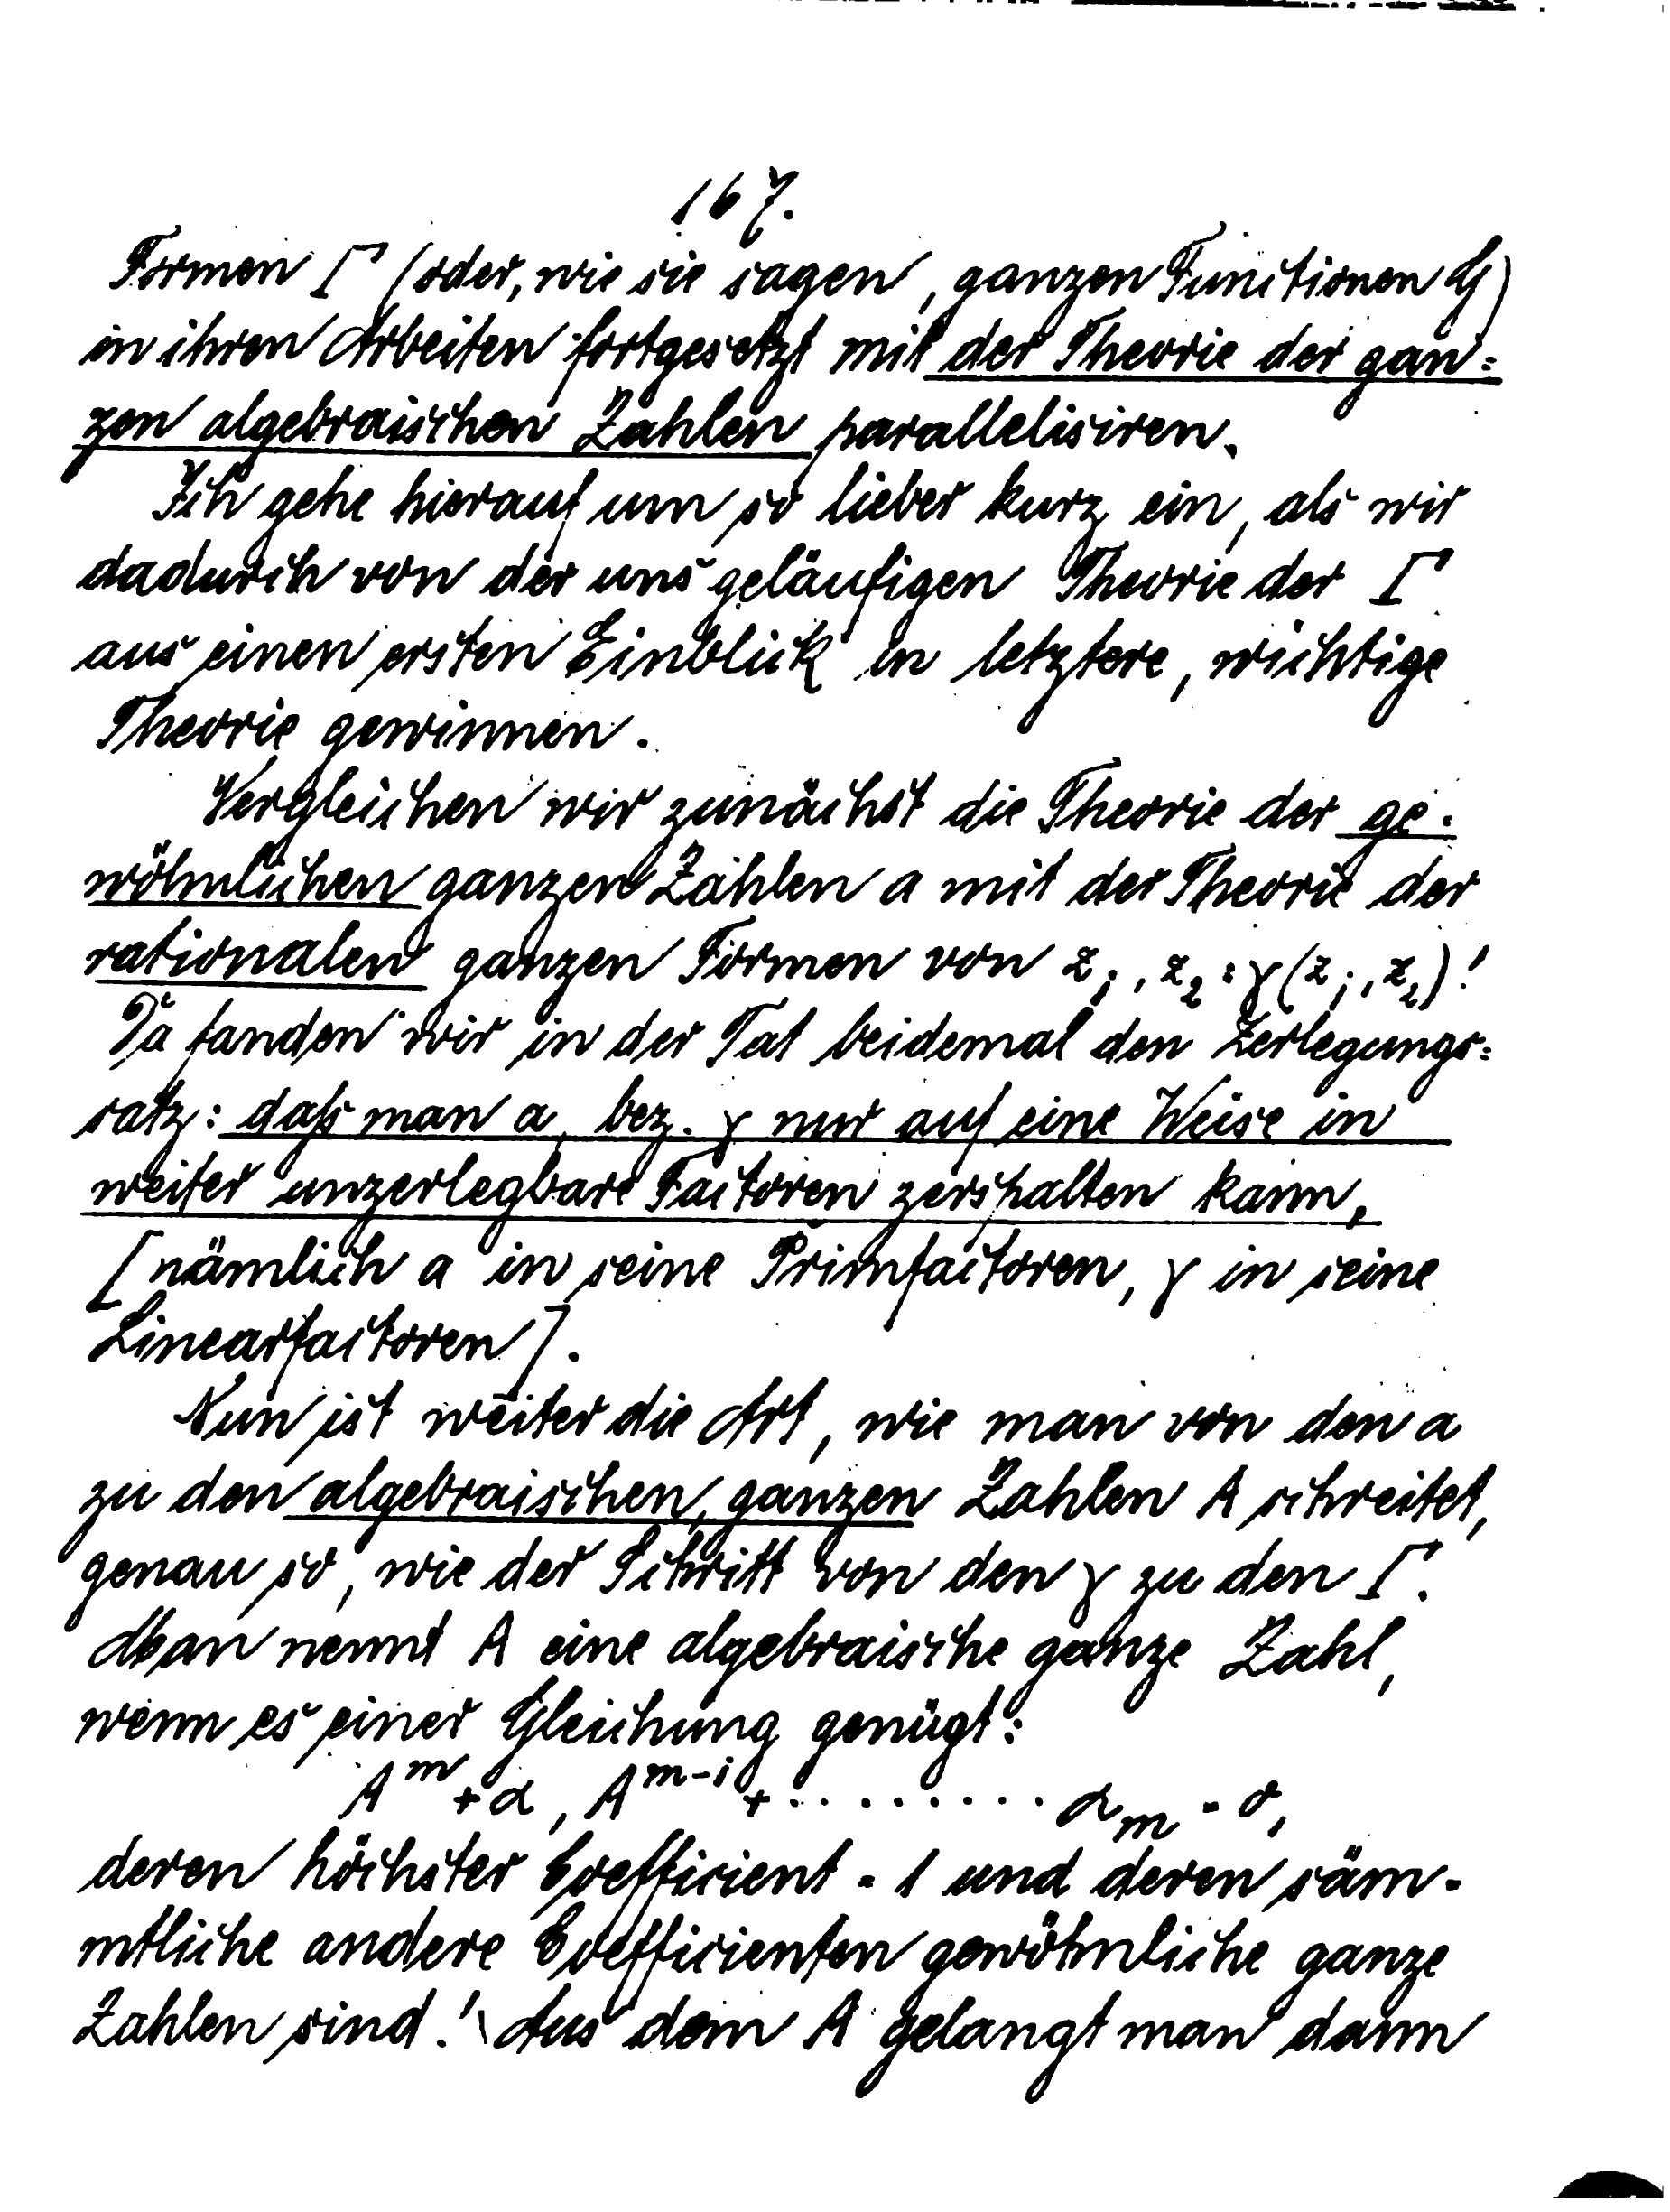 167.
Formen Γ (oder, wie sie sagen, ganzen Functionen G)
in ihren Arbeiten fortgesetzt mit der Theorie der gan=
zen algebraischen Zahlen parallelisiren.
Ich gehe hierauf um so lieber kurz ein, als wir
dadurch von der uns geläufigen Theorie der Γ
aus einen ersten Einblick in letztere, wichtige
Theorie gewinnen.
Vergleichen wir zunächst die Theorie der ge=
wöhnlichen ganzen Zahlen a mit der Theorie der
rationalen ganzen Formen von z₁, z₂: γ(z₁, z₂)!
Da fanden wir in der Tat beidemal den Zerlegungs=
satz: daß man a, bez. γ nur auf eine Weise in
weiter unzerlegbare Factoren zerspalten kann,
[nämlich a in seine Primfactoren, γ in seine
Linearfactoren].
Nun ist weiter die Art, wie man von den a
zu den algebraischen, ganzen Zahlen A schreitet,
genau so, wie der Schritt von den γ zu den Γ.
Man nennt A eine algebraische ganze Zahl,
wenn es einer Gleichung genügt:
Aᵐ + α₁ Aᵐ⁻¹ + ......... αₘ = 0,
deren höchster Coefficient = 1 und deren säm=
mtliche andere Coefficienten gewöhnliche ganze
Zahlen sind! Aus dem A gelangt man dann